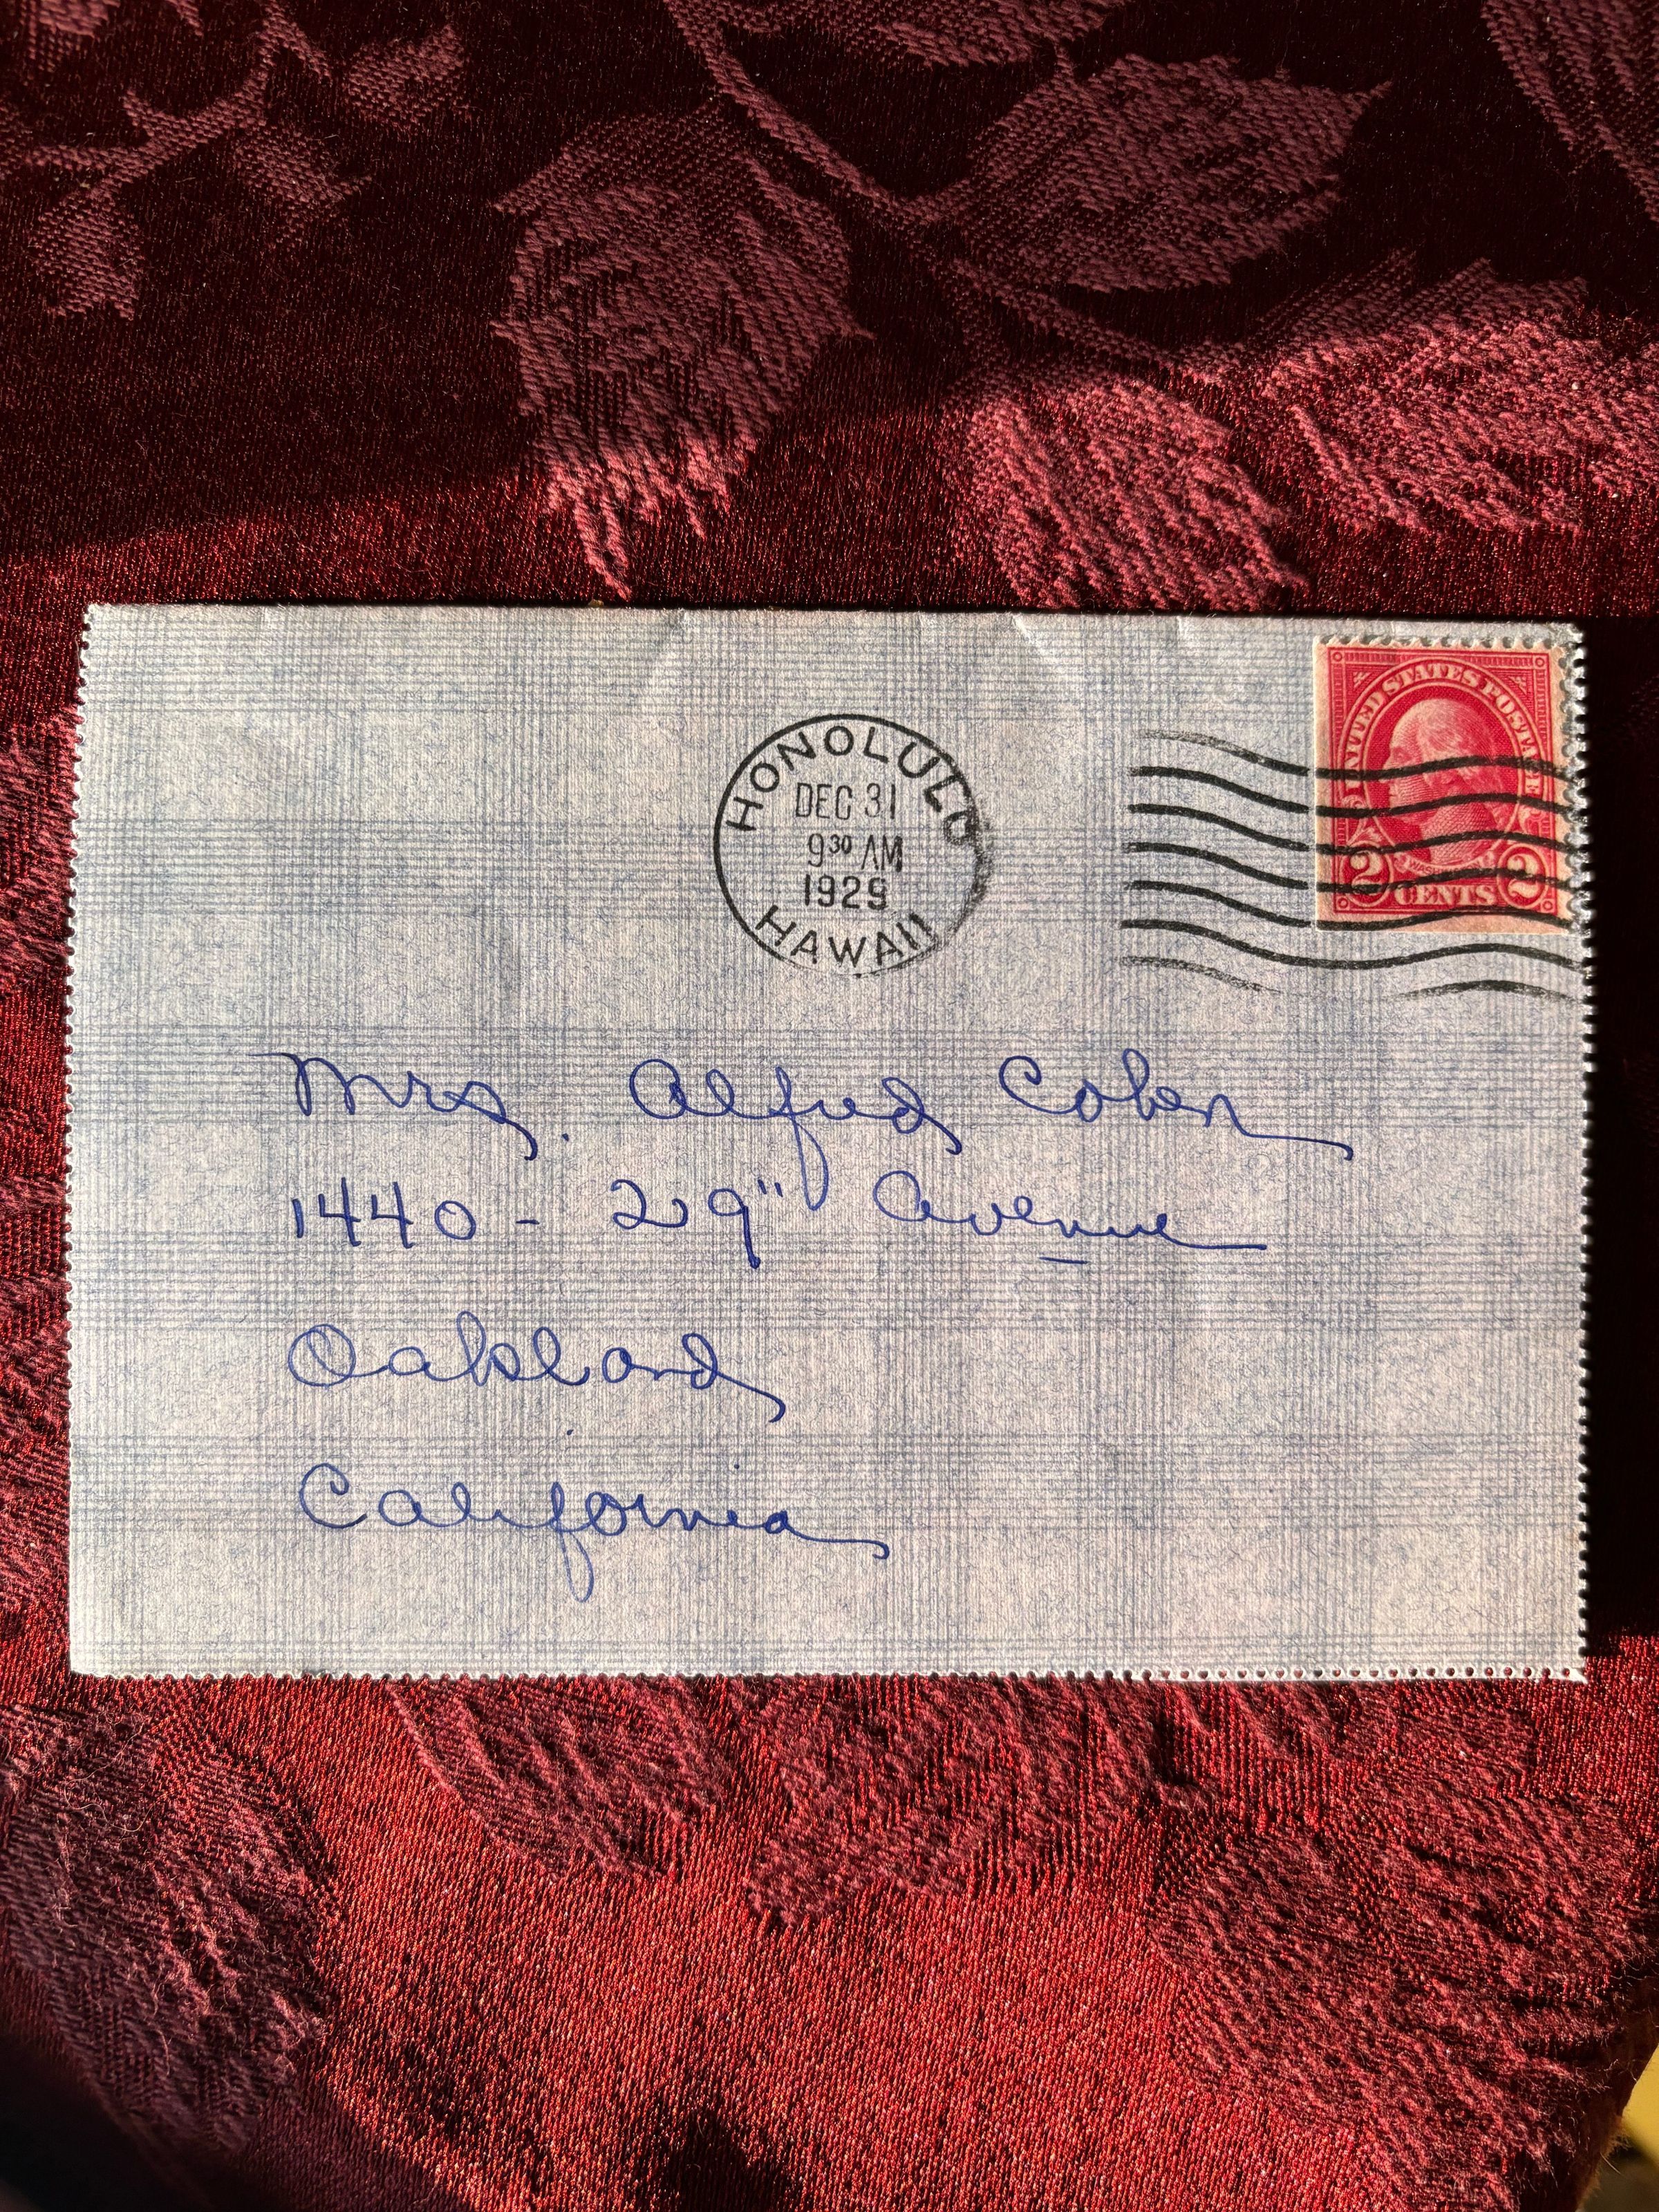 HONOLULU
DEC 31
9 30 AM
1929
HAWAII
UNITED STATES POSTAGE
2 CENTS 2
Mrs. Alfred Cohen
1440 - 29" Avenue
Oakland
California